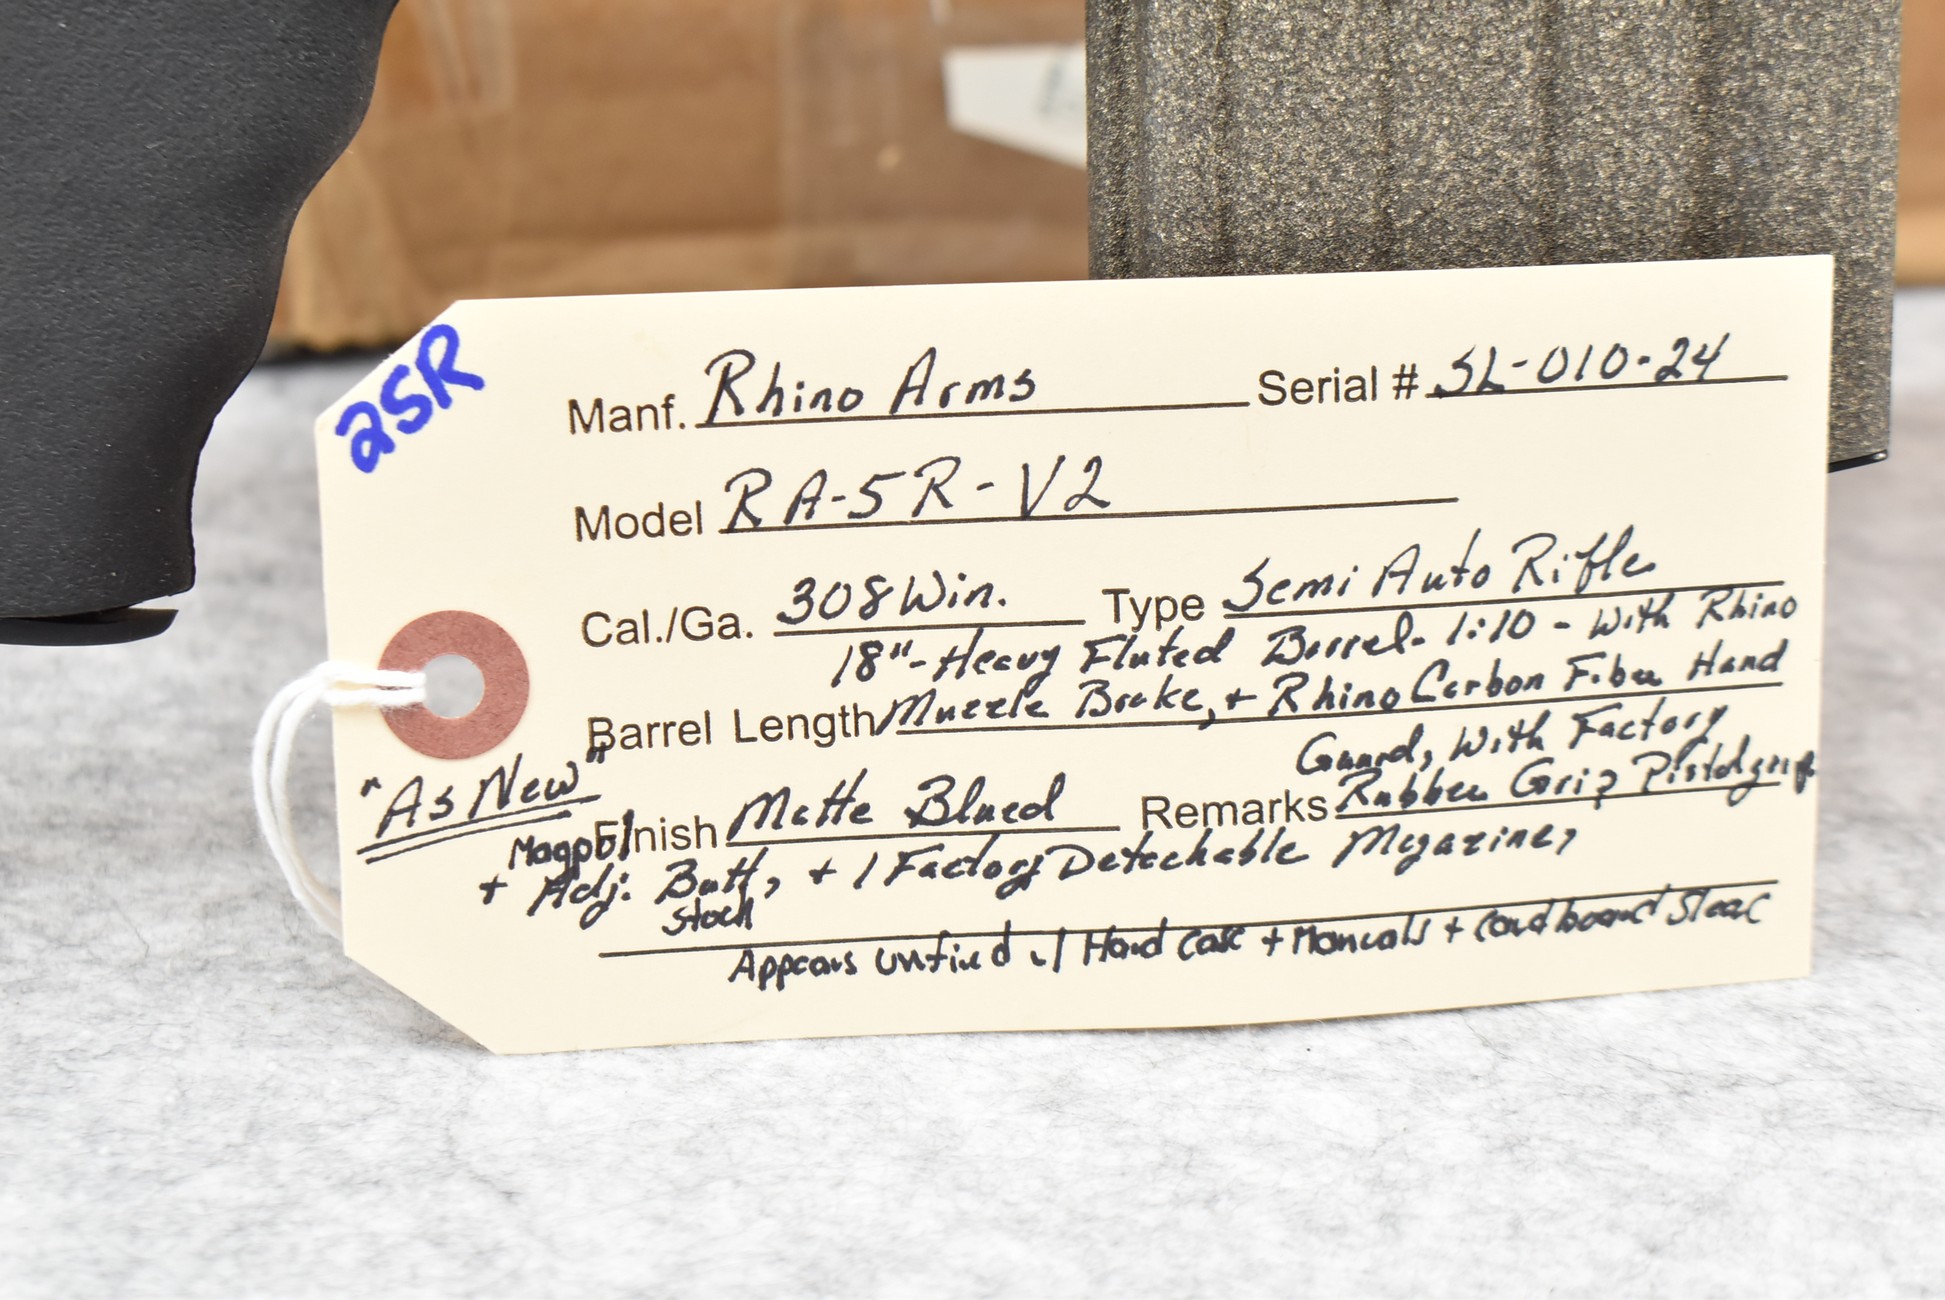 2SR
Manf. Rhino Arms Serial # SL-010-24
Model RA-5R-V2
Cal./Ga. 308 Win. Type Semi Auto Rifle
18"-Heavy Fluted Barrel- 1:10 - With Rhino
Barrel Length Muzzle Brake, + Rhino Carbon Fiber Hand
Guard, With Factory
"As New"
Finish Matte Blued Remarks Rubber Grip Pistolgrip
Magpul
+ Adj. Butt, + 1 Factory Detachable Magazine,
Stock
Appears unfired w/ Hard case + Manuals + cardboard Sleac